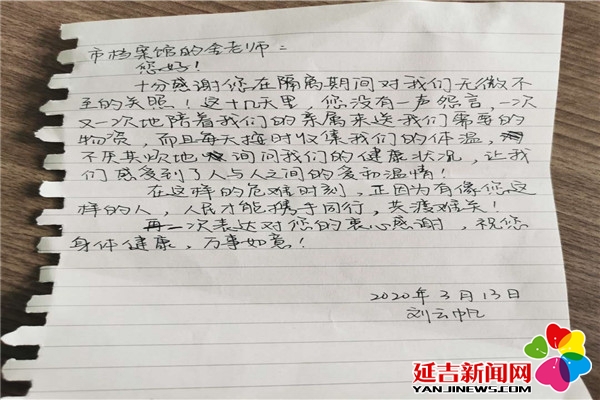 市档案馆的金老师：
您好！
十分感谢您在隔离期间对我们无微不
至的关照！这十几天里，您没有一声怨言，一次
又一次地陪着我们的亲属来送我们需要的
物资，而且每天按时收集我们的体温，
不厌其烦地询问我们的健康状况，让我
们感受到了人与人之间的爱和温情！
在这样的危难时刻，正因为有像您这
样的人，人民才能携手同行，共渡难关！
再一次表达对您的衷心感谢，祝您
身体健康，万事如意！
2020年3月13日
刘云帆
延吉新闻网
YANJINEWS.COM